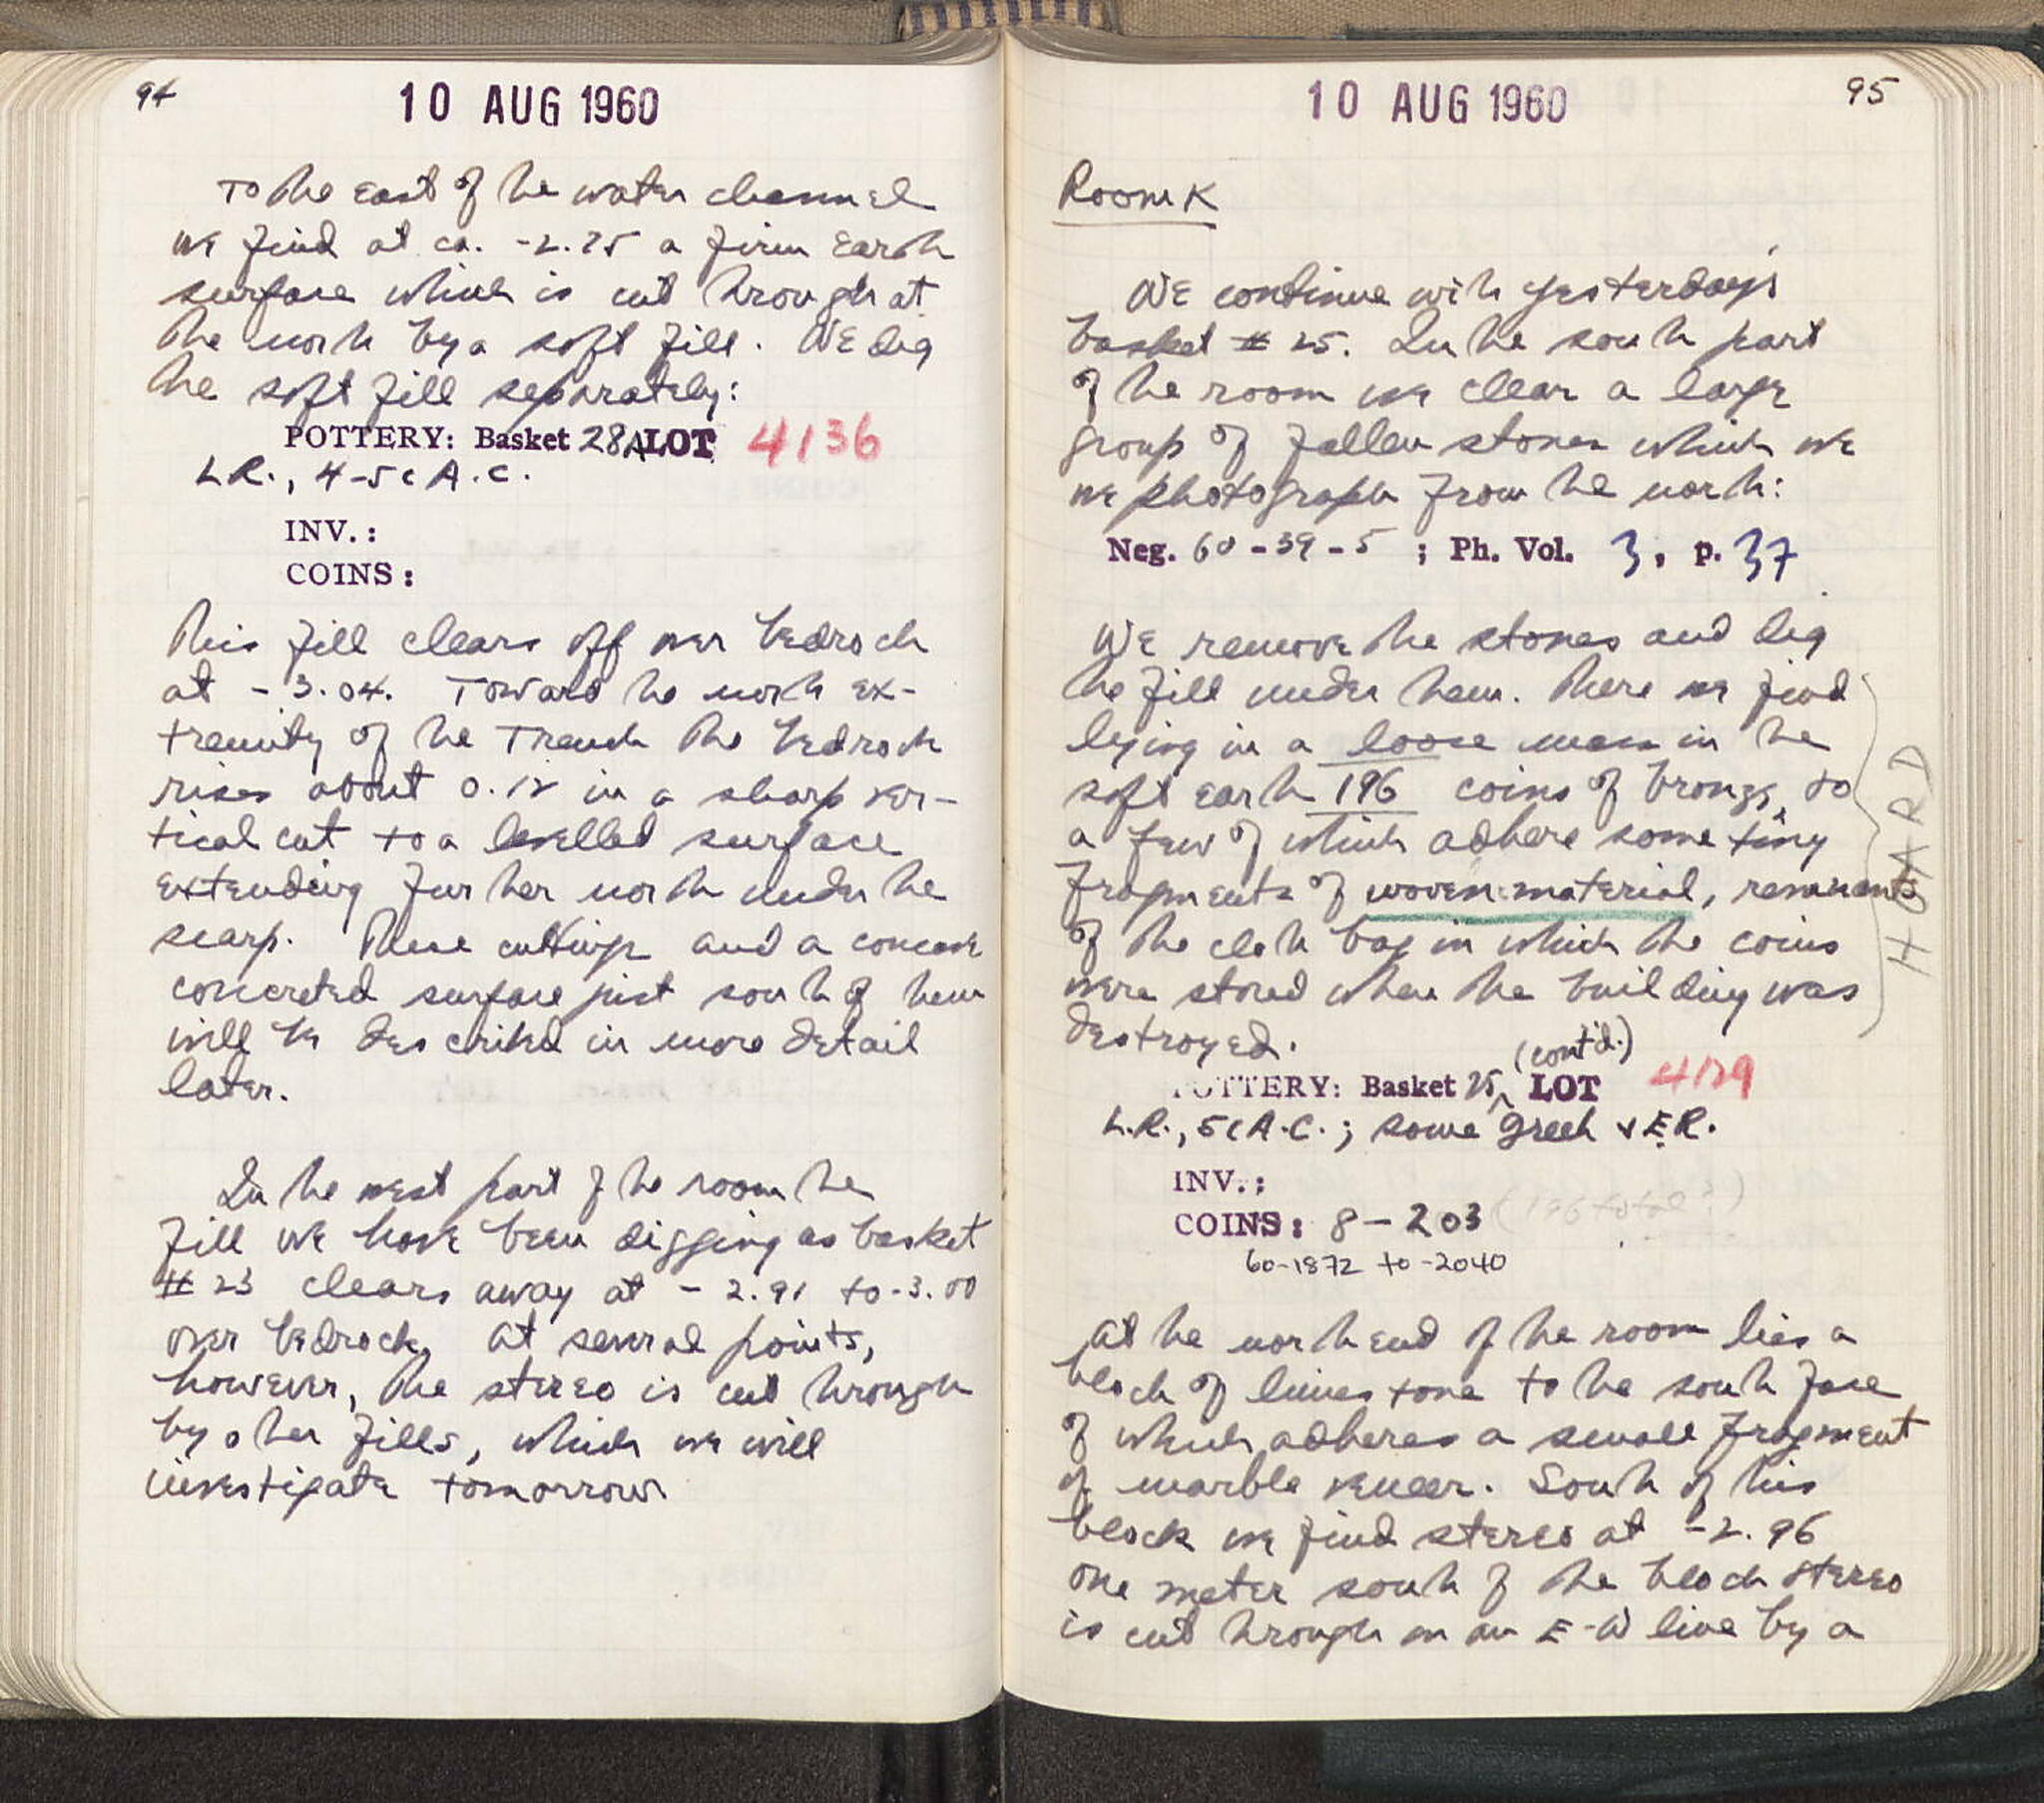 94
10 AUG 1960
To the east of the water channel
we find at ca. -2.75 a firm earth
surface which is cut through at
the north by a soft fill. We dig
the soft fill separately:
POTTERY: Basket 28A LOT 4136
L.R., 4-5c A.C.
INV.:
COINS:
This fill clears off over bedrock
at -3.04. Toward the north ex-
tremity of the Trench the bedrock
rises about 0.12 in a sharp ver-
tical cut to a levelled surface
extending further north under the
scarp. These cuttings and a concave
concreted surface just south of them
will be described in more detail
later.
In the west part of the room the
fill we have been digging as basket
# 23 clears away at -2.91 to -3.00
over bedrock. At several points,
however, the stereo is cut through
by other fills, which we will
investigate tomorrow.
10 AUG 1960
95
Room K
We continue with yesterday's
basket # 25. In the south part
of the room we clear a large
group of fallen stones which we
we photograph from the north:
Neg. 60-39-5 ; Ph. Vol. 3, p. 37
We remove the stones and dig
the fill under them. There we find
lying in a loose mass in the
soft earth 196 coins of bronze, to
a few of which adhere some tiny
fragments of woven material, remnants
of the cloth bag in which the coins
were stored when the building was
destroyed.
HOARD
(cont'd.)
POTTERY: Basket 25 LOT 4129
L.R., 5c A.C.; some Greek & E.R.
INV.:
COINS: 8-203 (196 total?)
60-1872 to -2040
At the north end of the room lies a
block of limestone to the south face
of which adheres a small fragment
of marble veneer. South of this
block we find stereo at -2.96
One meter south of the block stereo
is cut through on an E-W line by a